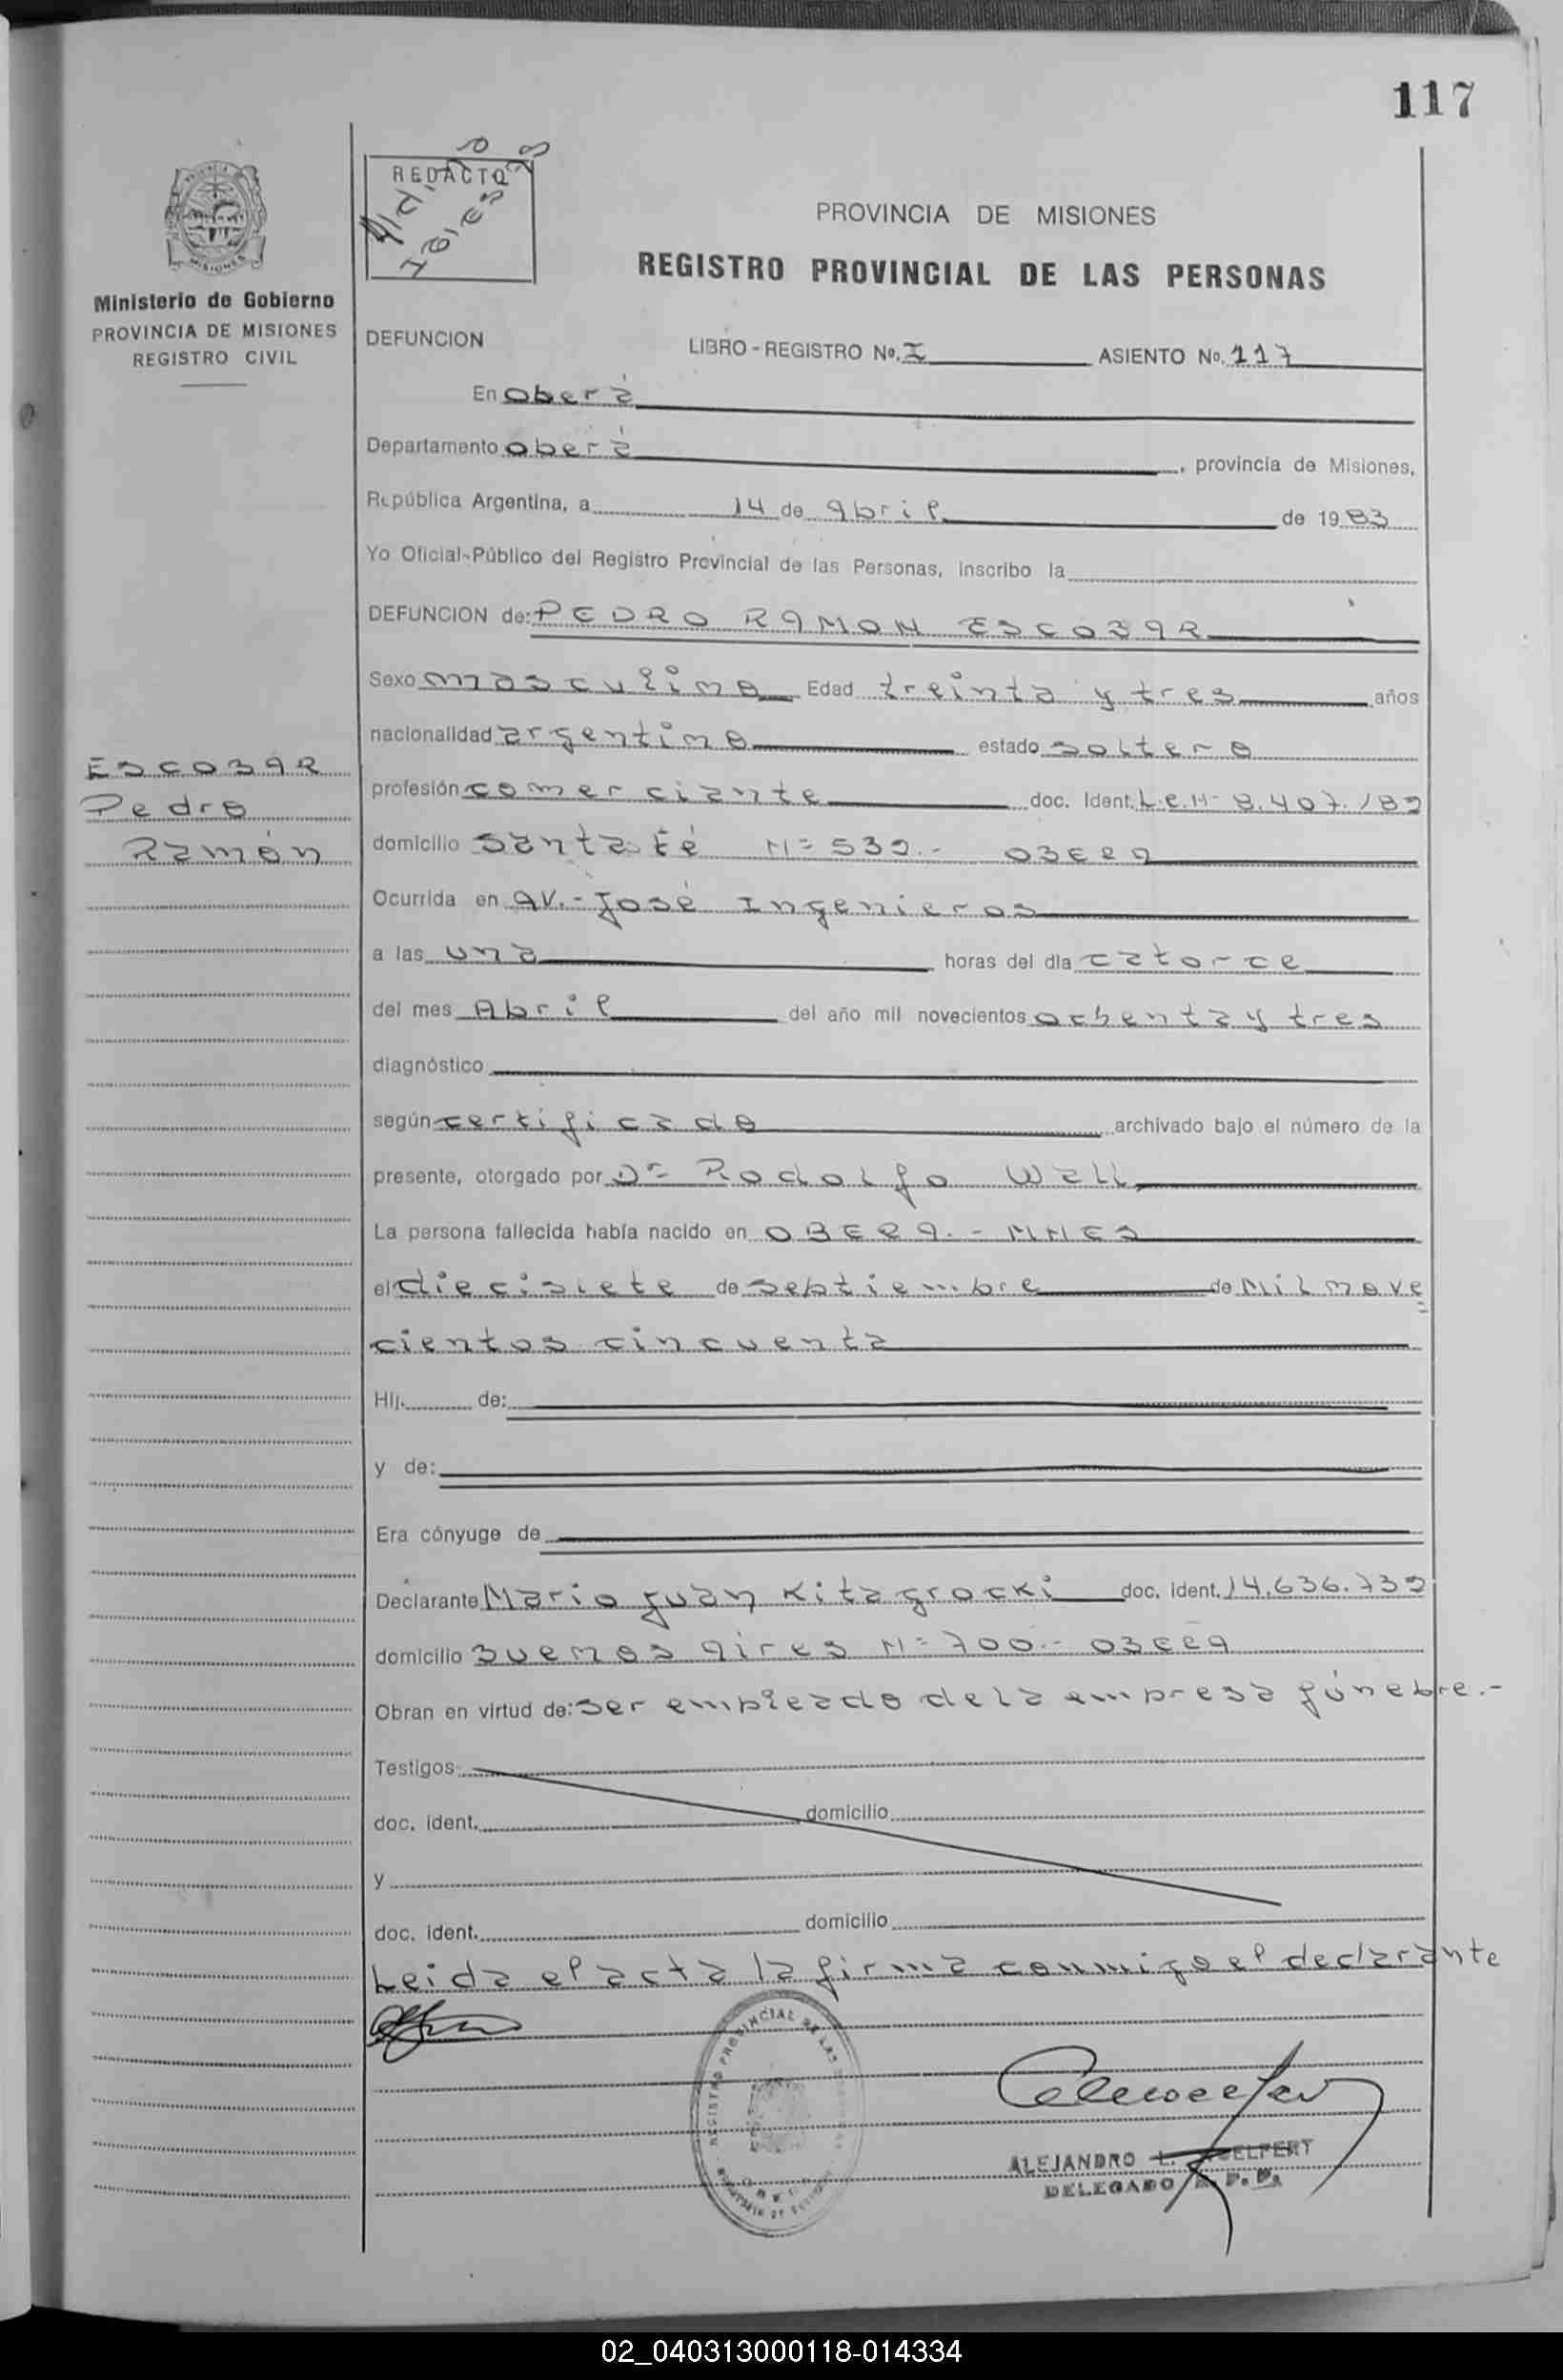 117
REDACTO
PROVINCIA DE MISIONES
REGISTRO PROVINCIAL DE LAS PERSONAS
Ministerio de Gobierno
PROVINCIA DE MISIONES
REGISTRO CIVIL
DEFUNCION LIBRO - REGISTRO No. I ASIENTO No. 117
En Oberá
Departamento Oberá, provincia de Misiones,
República Argentina, a 14 de Abril de 1983
Yo Oficial-Público del Registro Provincial de las Personas, inscribo la
DEFUNCION de: PEDRO RAMON ESCOBAR
Sexo masculino Edad treinta y tres años
nacionalidad argentino estado soltero
ESCOBAR
Pedro
Ramón
profesión comerciante doc. Ident. L.E.Nº 8.407.189
domicilio Santa Fé Nº 539.- OBERA
Ocurrida en AV.- José Ingenieros
a las una horas del dia catorce
del mes Abril del año mil novecientos ochenta y tres
diagnóstico
según certificado archivado bajo el número de la
presente, otorgado por Dr Rodolfo Wall
La persona fallecida había nacido en OBERA.- MNES
el diecisiete de septiembre de Mil nove
cientos cincuenta
Hij. de:
y de:
Era cónyuge de
Declarante Mario Juan Kitagrocki doc. ident. 14.636.739
domicilio Buenos Aires Nº 700.- OBERA
Obran en virtud de: ser empleado de la empresa fúnebre.-
Testigos
doc. ident. domicilio
y
doc. ident. domicilio
Leida el acta la firma conmigo el declarante
REGISTRO PROVINCIAL DE LAS
ALEJANDRO L.
DELEGADO
02_040313000118-014334